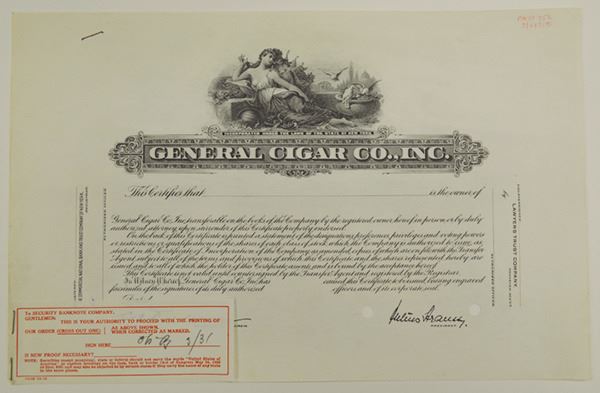 INCORPORATED UNDER THE LAWS OF THE STATE OF NEW YORK
GENERAL CIGAR CO., INC.
This Certifies that
is the owner of
General Cigar Co. Inc. transferable on the books of the Company by the registered owner hereof in person or by duly
authorized attorney upon surrender of this Certificate properly endorsed.
On the back of this Certificate is printed a statement of the designations, preferences, privileges and voting powers
or restrictions or qualifications of the shares of each class of stock which the Company is authorized to issue, as
stated in the Certificate of Incorporation of the Company as amended, copies of which are on file with the Transfer
Agent, subject to all of the terms and provisions of which this Certificate and the shares represented hereby are
issued, and to all of which the holder of this Certificate assents and is bound by the acceptance hereof.
This Certificate is not valid until countersigned by the Transfer Agent and registered by the Registrar.
In Witness Whereof General Cigar Co. Inc. has caused this Certificate to be issued bearing engraved
facsimiles of the signatures of its duly authorized officers and of its corporate seal.
PRESIDENT
LAWYERS TRUST COMPANY
To SECURITY BANKNOTE COMPANY,
GENTLEMEN:
THIS IS YOUR AUTHORITY TO PROCEED WITH THE PRINTING OF
OUR ORDER (CROSS OUT ONE)
AS ABOVE SHOWN.
WHEN CORRECTED AS MARKED.
SIGN HERE
2/31
IS NEW PROOF NECESSARY?